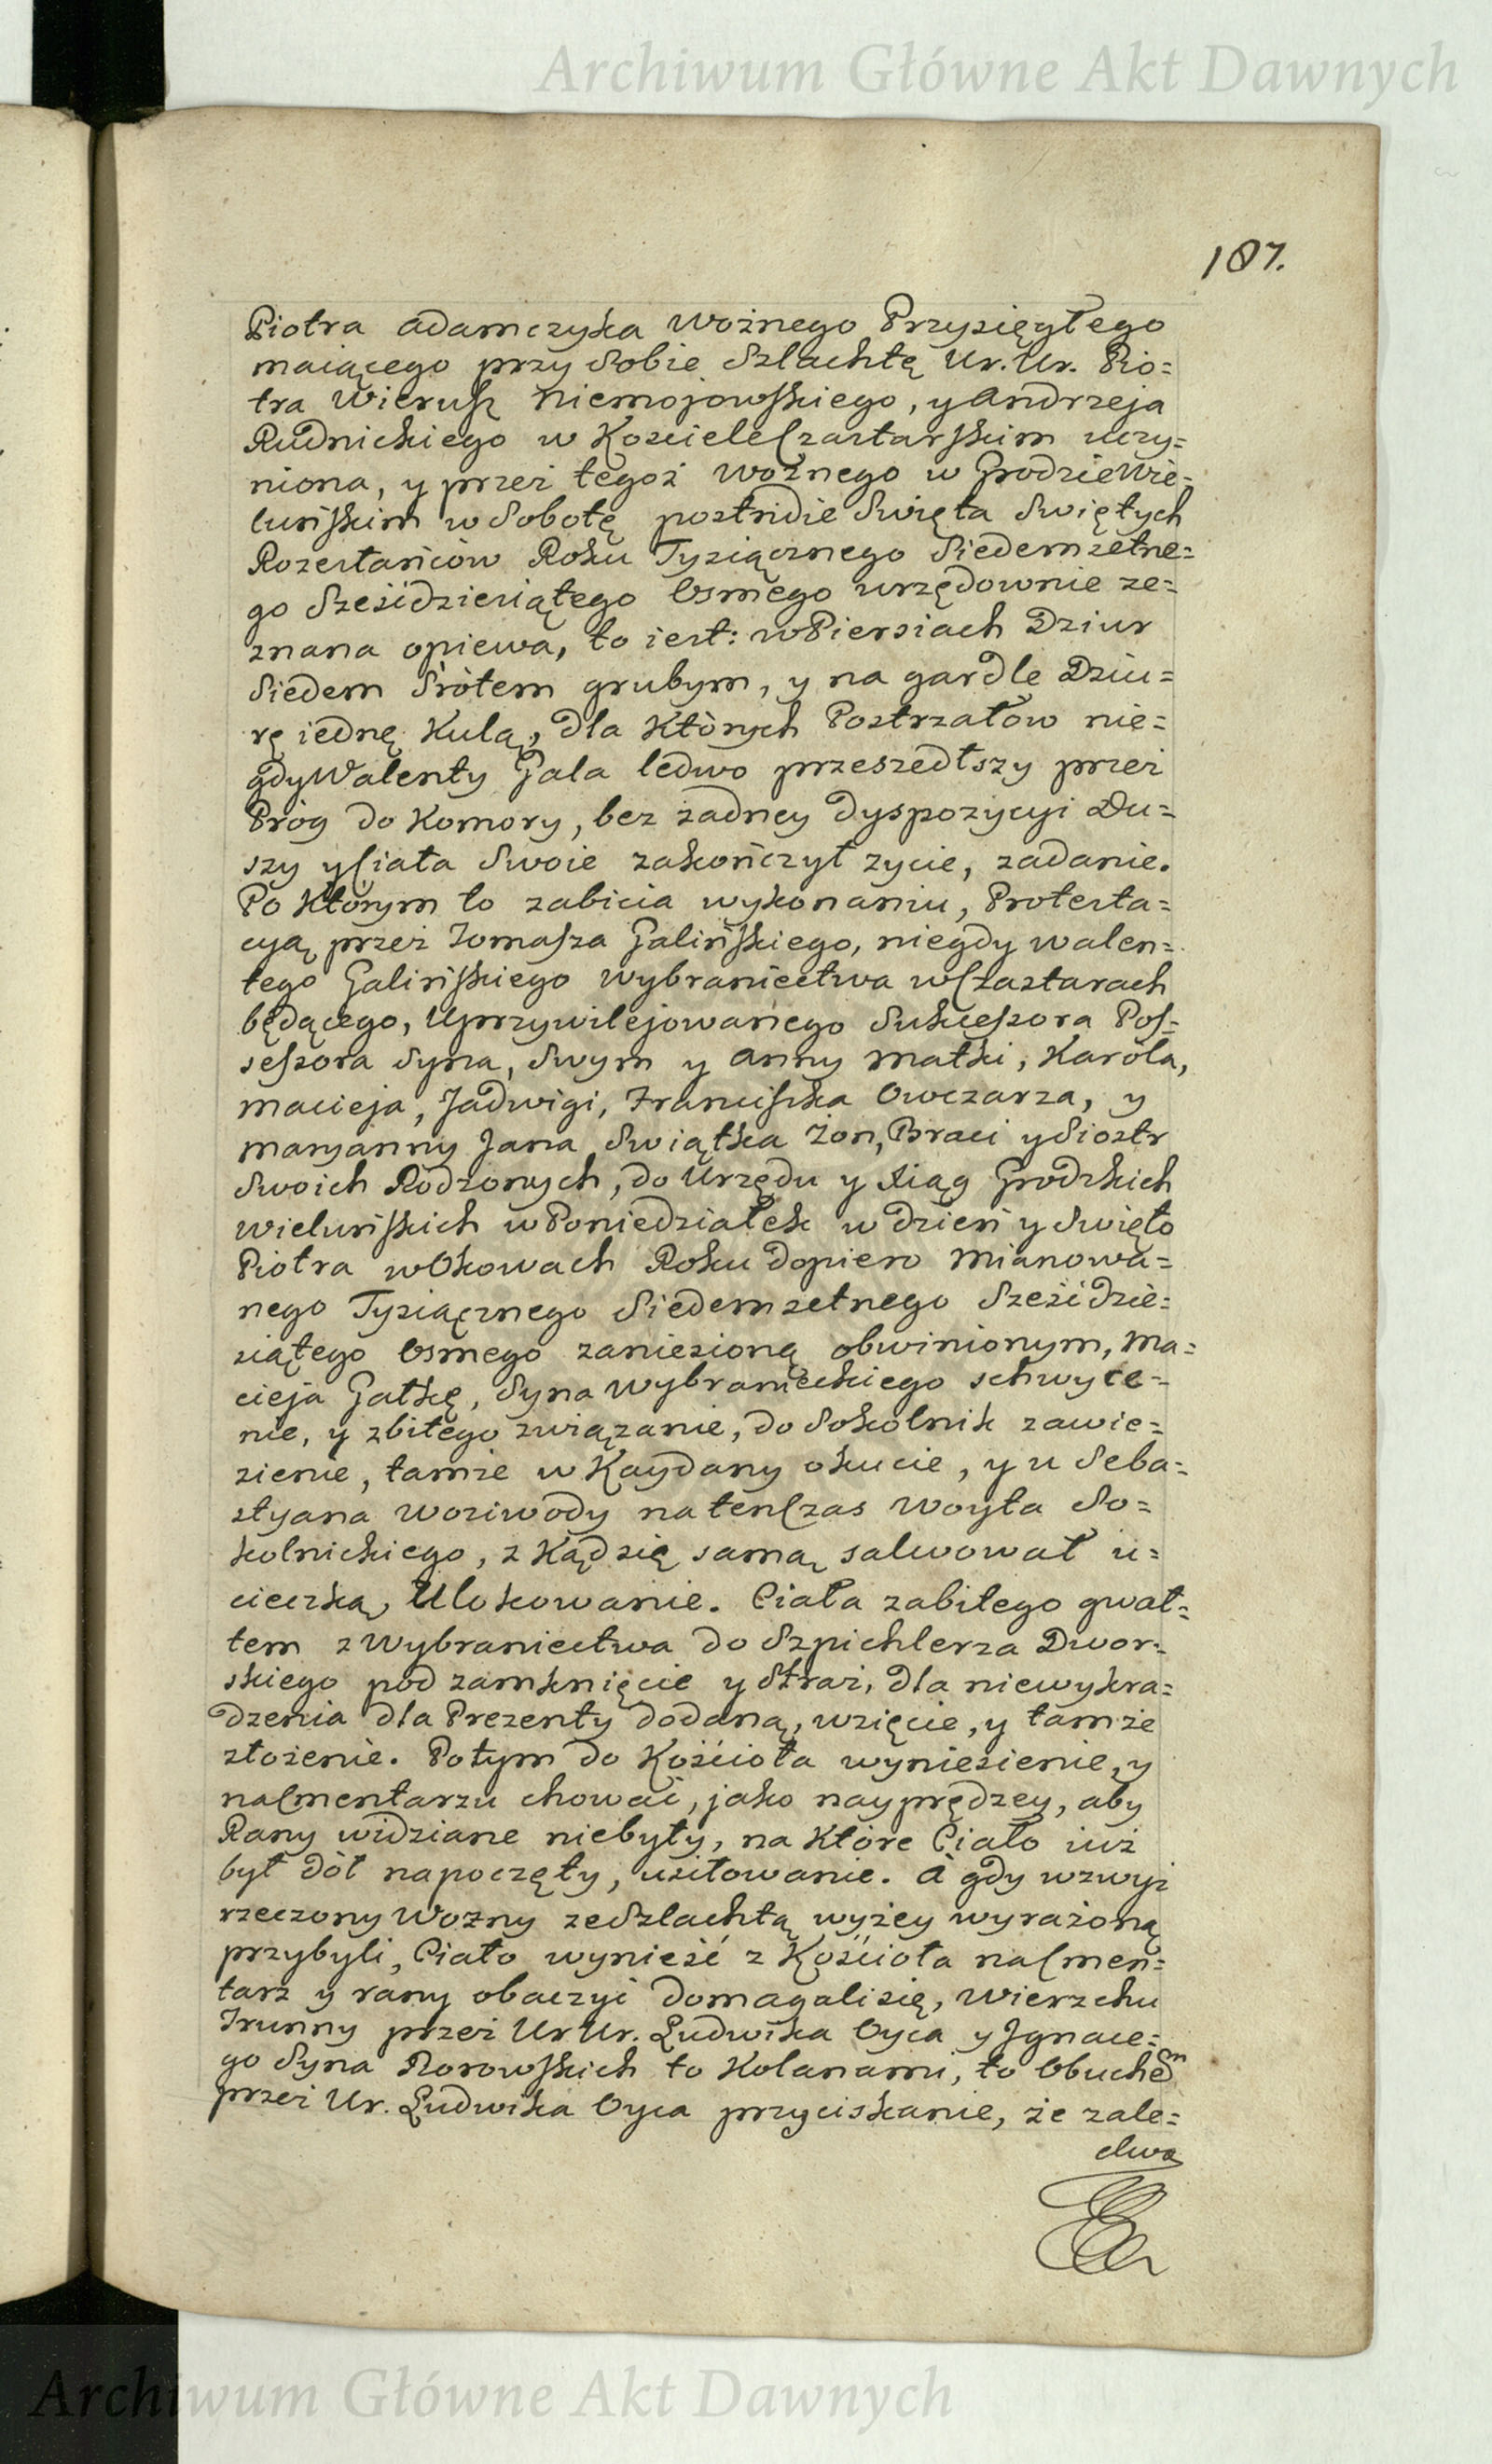 Archiwum Główne Akt Dawnych
187.
Piotra Adamczyka Woźnego Przysięgłego
maiącego przy Sobie Szlachtę Ur. Ur. Pio=
tra Wierusz Niemojowskiego, y Andrzeja
Rudnickiego w Kosciele Czastarskim uczy=
niona, y przez tegoż Woźnego w Grodzie Wie=
luńskim w Sobotę postridie Swięta Swiętych
Rozesłańców Roku Tysiącznego Siedemsetne=
go Sześćdziesiątego Osmego urzędownie ze=
znana opiewa, to iest: w Piersiach Dziur
Siedem Srótem grubym, y na gardle Dziu=
rę iednę Kulą, dla Których Postrzałów nie=
gdy Walenty Gala ledwo przeszedłszy przez
Próg do Komory, bez żadney dyspozycyi Du=
szy y Ciała Swoie zakończył zycie, zadanie.
Po Którym to zabicia wykonaniu, Protesta=
cyą przez Tomasza Galińskiego, niegdy Walen=
tego Galińskiego wybraniectwa w Czastarach
będącego, Uprzywilejowanego Sukcessora Pos=
sessora Syna, Swym y Anny Matki, Karola,
Macieja, Jadwigi, Franciszka Owczarza, y
Maryanny Jana Swiątka Żon, Braci y Siostr
Swoich Rodzonych, do Urzędu y Xiąg Grodzkich
Wieluńskich w Poniedziałek w dzień y Swięto
Piotra w Okowach Roku dopiero Mianowa=
nego Tysiącznego Siedemsetnego Sześćdzie=
siątego Osmego zaniesioną obwinionym, Ma=
cieja Gałkę, Syna Wybranieckiego schwyce=
nie, y zbitego związanie, do Sokolnik zawie=
zienie, tamże w Kaydany okucie, y u Seba=
styana Woziwody natenczas Woyta So=
kolnickiego, z Kąd się samą salwował u=
cieczką, Ulokowanie. Ciała zabitego gwał=
tem z Wybraniectwa do Szpichlerza Dwor=
skiego pod zamknięcie y Straż, dla niewykra=
dzenia dla Prezenty dodaną, wzięcie, y tamże
złożenie. Potym do Kościoła wyniesienie, y
na Cmentarzu chować, jako nayprędzey, aby
Rany widziane niebyły, na Które Ciało iuż
był dół napoczęty, usiłowanie. A gdy wzwyż
rzeczony Woźny ze Szlachtą wyżey wyrażoną
przybyli, Ciało wynieść z Kościoła na Cmen=
tarz y rany obaczyć domagali się, Wierzchu
Trunny przez Ur. Ur. Ludwika Oyca y Ignace=
go Syna Rorowskich to Kolanami, to Obuchem
przez Ur. Ludwika Oyca przyciskanie, że zale=
dwo
Archiwum Główne Akt Dawnych